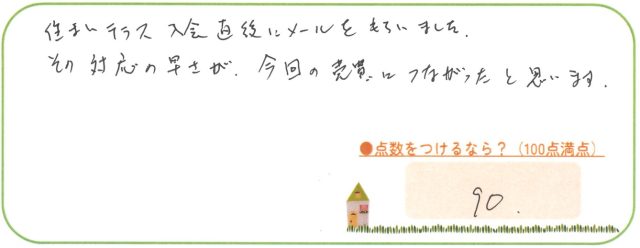 住まいテラス 入会直後にメールをもらいました。
その対応の早さが、今回の売買につながったと思います。
●点数をつけるなら？（100点満点）
90.